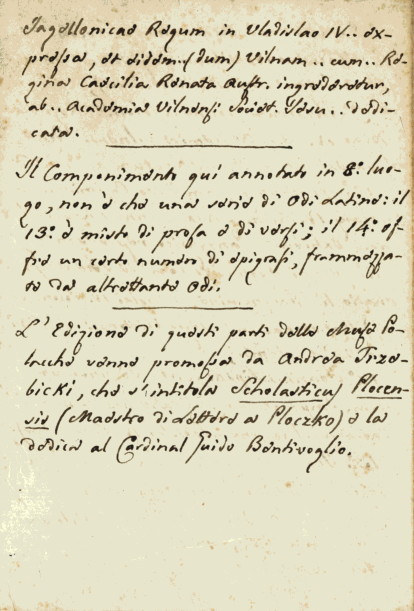 Jagellonicae Regum in Vladislao IV.. ex-
pressa, et eidem (dum) Vilnam.. cum.. Re-
gina Caecilia Renata Austr. ingrederetur,
ab.. Academia Vilnensi Societ. Jesu.. dedi-
cata.
Il Componimento qui annotato in 8º luo-
go, non è che una serie di Odi Latine: il
13º è misto di prosa e di versi; il 14º of-
fre un certo numero di epigrafi, frammezza-
te da altrettante Odi.
L' Edizione di questi parti delle Muse Po-
lacche venne promossa da Andrea Trze-
bicki, che s'intitola Scholasticus Plocen-
sis (Maestro di Lettere a Ploczko) e la
dedica al Cardinal Guido Bentivoglio.